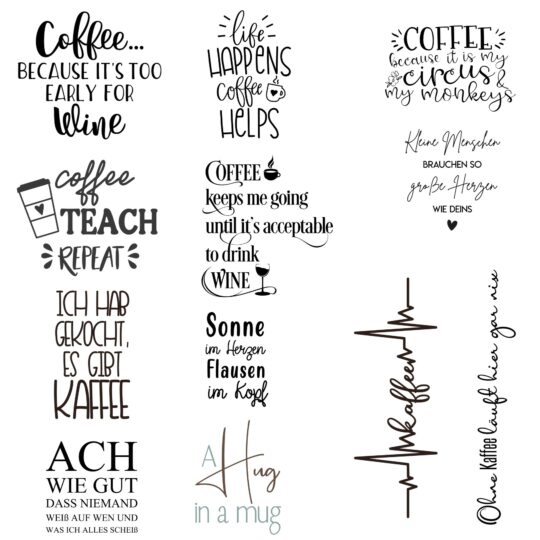 Coffee...
BECAUSE IT'S TOO
EARLY FOR
Wine
life
HAPPENS
coffee
HELPS
COFFEE
because it is my
circus &
my monkeys
Kleine Menschen
BRAUCHEN SO
große Herzen
WIE DEINS
coffee
TEACH
REPEAT
COFFEE
keeps me going
until it's acceptable
to drink
WINE
ICH HAB
GEKOCHT,
ES GIBT
KAFFEE
Sonne
im Herzen
Flausen
im Kopf
kaffee
Ohne Kaffee läuft hier gar nix
ACH
WIE GUT
DASS NIEMAND
WEIß AUF WEN UND
WAS ICH ALLES SCHEIß
A Hug
in a mug